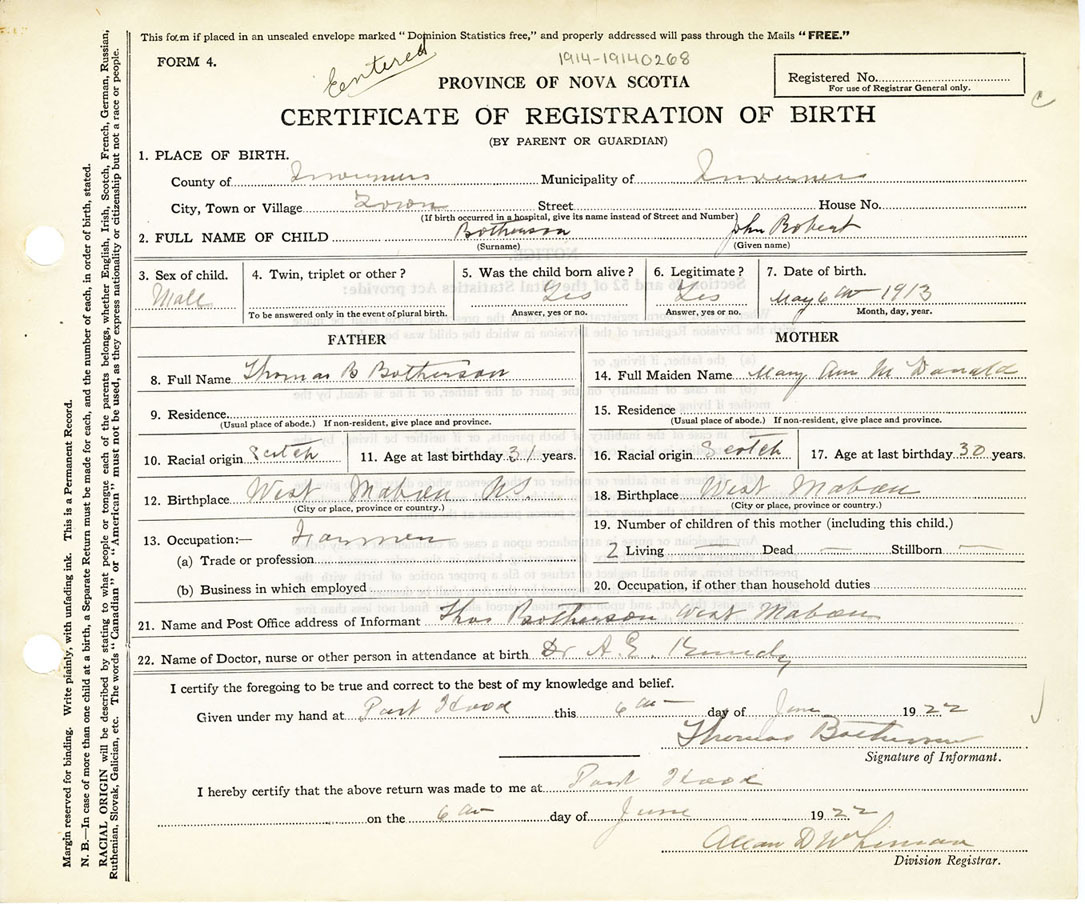 This form if placed in an unsealed envelope marked "Dominion Statistics free," and properly addressed will pass through the Mails "FREE."
FORM 4.
Entered
1914-19140268
PROVINCE OF NOVA SCOTIA
Registered No.
For use of Registrar General only.
CERTIFICATE OF REGISTRATION OF BIRTH
(BY PARENT OR GUARDIAN)
1. PLACE OF BIRTH.
County of Inverness Municipality of Inverness
City, Town or Village Town Street House No.
(If birth occurred in a hospital, give its name instead of Street and Number)
2. FULL NAME OF CHILD Botherson John Robert
(Surname) (Given name)
3. Sex of child. 4. Twin, triplet or other? 5. Was the child born alive? 6. Legitimate? 7. Date of birth.
Male Yes Yes May 6th 1913
To be answered only in the event of plural birth. Answer, yes or no. Answer, yes or no. Month, day, year.
FATHER
8. Full Name Thomas B Botherson
9. Residence.
(Usual place of abode.) If non-resident, give place and province.
10. Racial origin Scotch 11. Age at last birthday 31 years.
12. Birthplace West Mabou N.S.
(City or place, province or country.)
13. Occupation:— Farmer
(a) Trade or profession
(b) Business in which employed
MOTHER
14. Full Maiden Name Mary Ann McDonald
15. Residence
(Usual place of abode.) If non-resident, give place and province.
16. Racial origin Scotch 17. Age at last birthday 30 years.
18. Birthplace West Mabou
(City or place, province or country.)
19. Number of children of this mother (including this child.)
2 Living — Dead — Stillborn —
20. Occupation, if other than household duties
21. Name and Post Office address of Informant Thos Botherson West Mabou
22. Name of Doctor, nurse or other person in attendance at birth Dr A. E.
I certify the foregoing to be true and correct to the best of my knowledge and belief.
Given under my hand at Port Hood this 6th day of June 1922
Thomas Botherson
Signature of Informant.
I hereby certify that the above return was made to me at Port Hood
on the 6th day of June 1922
Allan D
Division Registrar.
Margin reserved for binding. Write plainly, with unfading ink. This is a Permanent Record.
N. B.—In case of more than one child at a birth, a Separate Return must be made for each, and the number of each, in order of birth, stated.
RACIAL ORIGIN will be described by stating to what people or tongue each of the parents belongs, whether English, Irish, Scotch, French, German, Russian,
Ruthenian, Slovak, Galician, etc. The words "Canadian" or "American" must not be used, as they express nationality or citizenship but not a race or people.